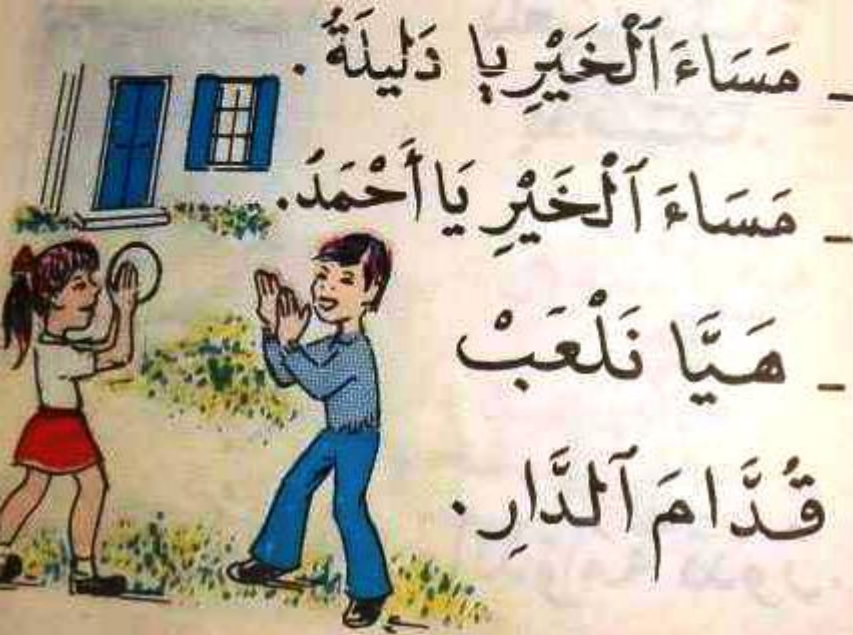 _ مَسَاءَ ٱلْخَيْرِ يا دَلِيلَةُ .
_ مَسَاءَ ٱلْخَيْرِ يَا أَحْمَدُ .
_ هَيَّا نَلْعَبْ
قُدَّامَ ٱلدَّارِ .